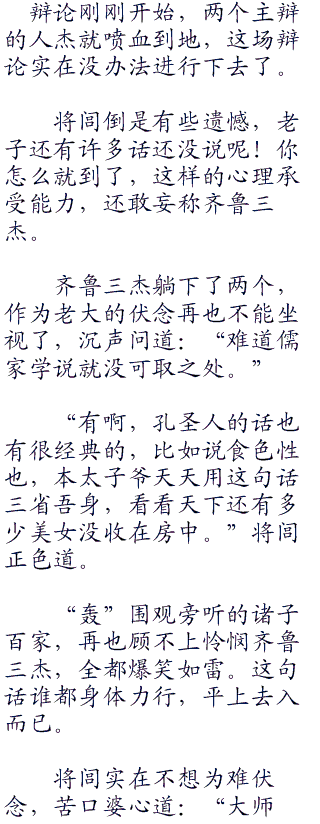 辩论刚刚开始，两个主辩
的人杰就喷血到地，这场辩
论实在没办法进行下去了。
将闾倒是有些遗憾，老
子还有许多话还没说呢！你
怎么就到了，这样的心理承
受能力，还敢妄称齐鲁三
杰。
齐鲁三杰躺下了两个，
作为老大的伏念再也不能坐
视了，沉声问道：“难道儒
家学说就没可取之处。”
“有啊，孔圣人的话也
有很经典的，比如说食色性
也，本太子爷天天用这句话
三省吾身，看看天下还有多
少美女没收在房中。”将闾
正色道。
“轰”围观旁听的诸子
百家，再也顾不上怜悯齐鲁
三杰，全都爆笑如雷。这句
话谁都身体力行，平上去入
而已。
将闾实在不想为难伏
念，苦口婆心道：“大师